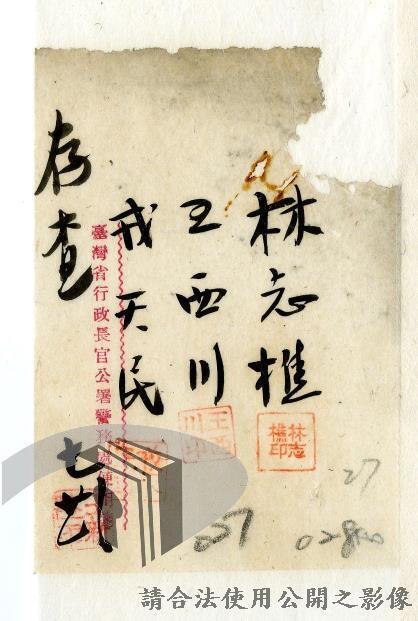 林志樵
王西川
戎天民
存查
七
臺灣省行政長官公署警務處使用
林志樵印
王西川印
27
027
028
請合法使用公開之影像